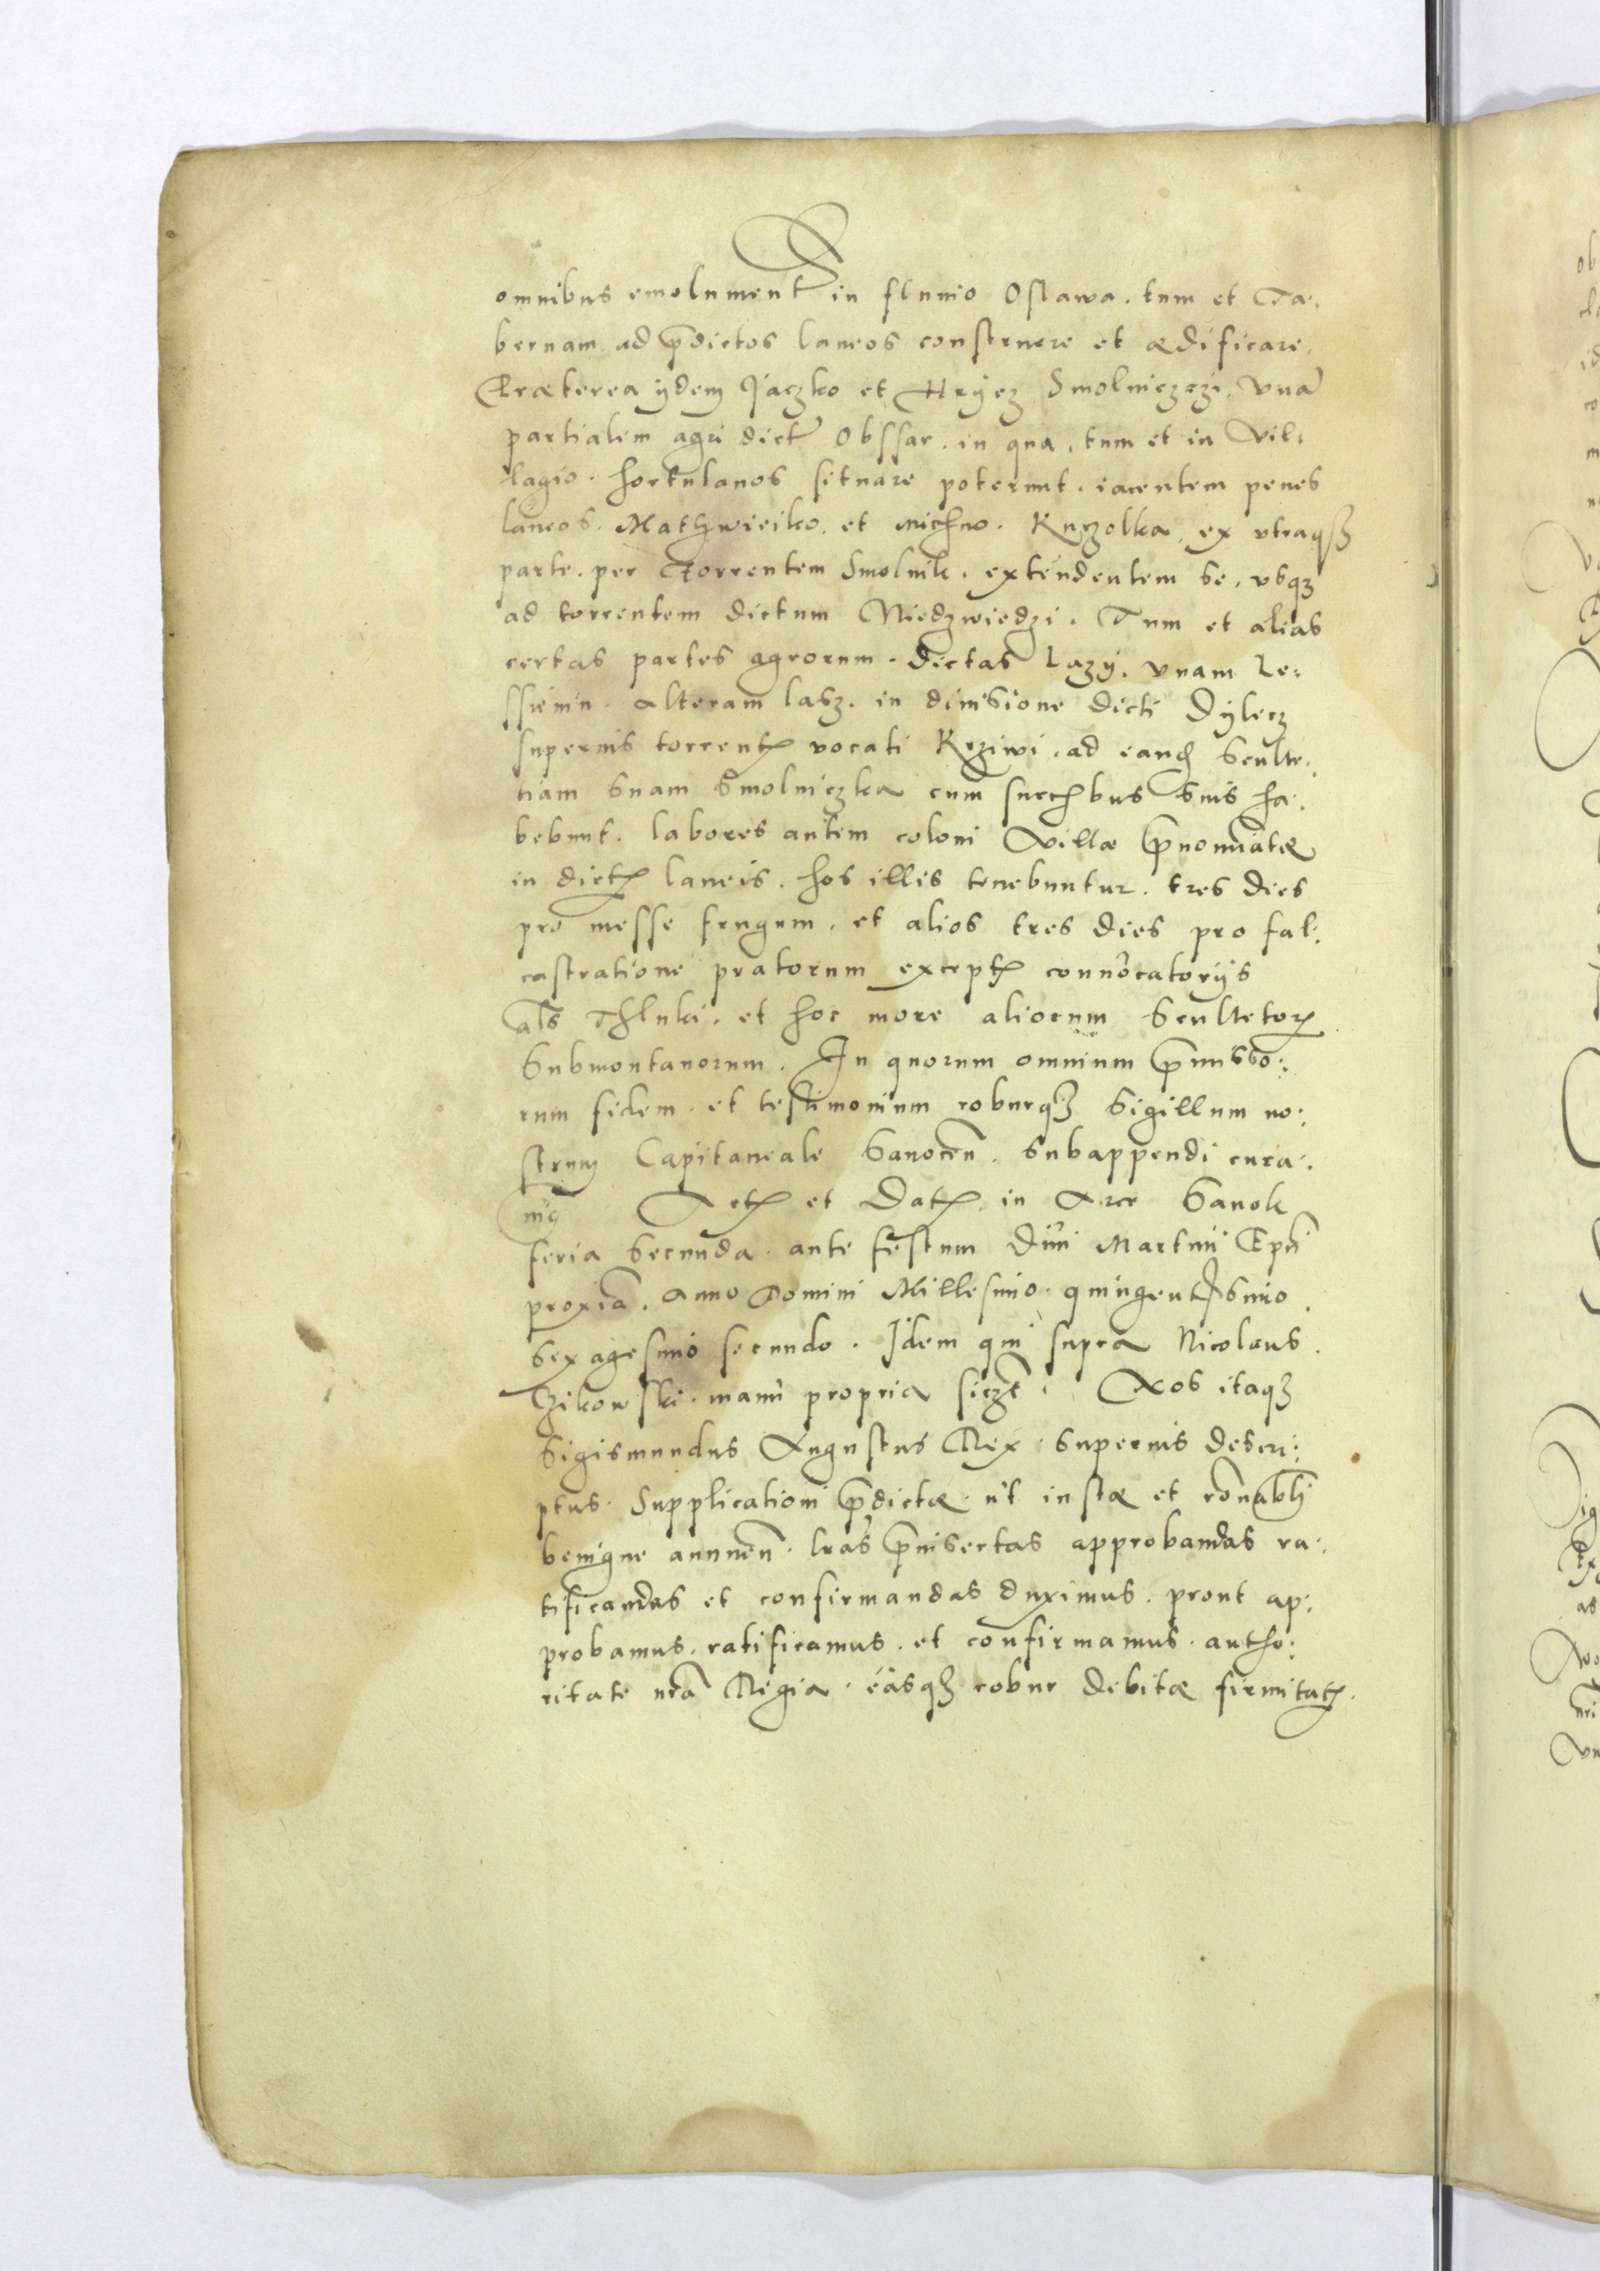 omnibus emolument in fluuio Oslawa. tum et Ta:
bernam ad p̄dictos laneos construere et ædificare.
Præterea ijdem Jaczko et Hrÿcz Smolniczczi. vnā
partialem agri dict Obssar. in qua, tum et in Vil:
lagio. hortulanos situare poterunt. iacentem penes
laneos. Mathwieiko. et Michno. Kuczolka, ex vtraqȝ
parte. per Torrentem Smolnik. extendentem se. vsqȝ
ad torrentem dictum Niedzwiedzi. Tum et alias
certas partes agrorum. dictas Lazÿ. vnam Le:
ssienin. alteram lasz. in diuisione dicti Dÿlecz
superius torrentꝭ vocati Krziwi. ad eand Sculte:
tiam suam Smolniczka cum succꝭbus suis ha:
bebunt. labores autem coloni Villæ p̄nominatæ
in dictꝭ laneis. hos illis tenebuntur. tres dies
pro messe frugum. et alios tres dies pro fal:
castratione pratorum exceptꝭ conuocatorijs
als Thluki. et hoc more aliorum Scultetorꝭ
Submontanorum. In quorum omnium p̄misso:
rum fidem. et testimonium roburqȝ Sigillum no:
strum Capitaneale Sanocen̄. subappendi cura:
mꝰ Actꝭ et Datꝭ in Arce Sanok
feria secunda. ante festum Diui Martini Epī
proxia. Anno Domini Millesimo. quingentꝭsimo
sexagesimo secundo. Idem qui supra Nicolaus
Czikowski. manu propria Nos itaqȝ
Sigismundus Augustus Rex. superius descri:
ptus. Supplicationi p̄dictæ. ut iustæ et ronabli
benigne annuen̄. lras p̄insertas approbandas ra:
tificandas et confirmandas duximus. prout ap:
probamus. ratificamus. et confirmamus. autho:
ritate nrā Regia. easqȝ robur debitæ firmitatꝭ.